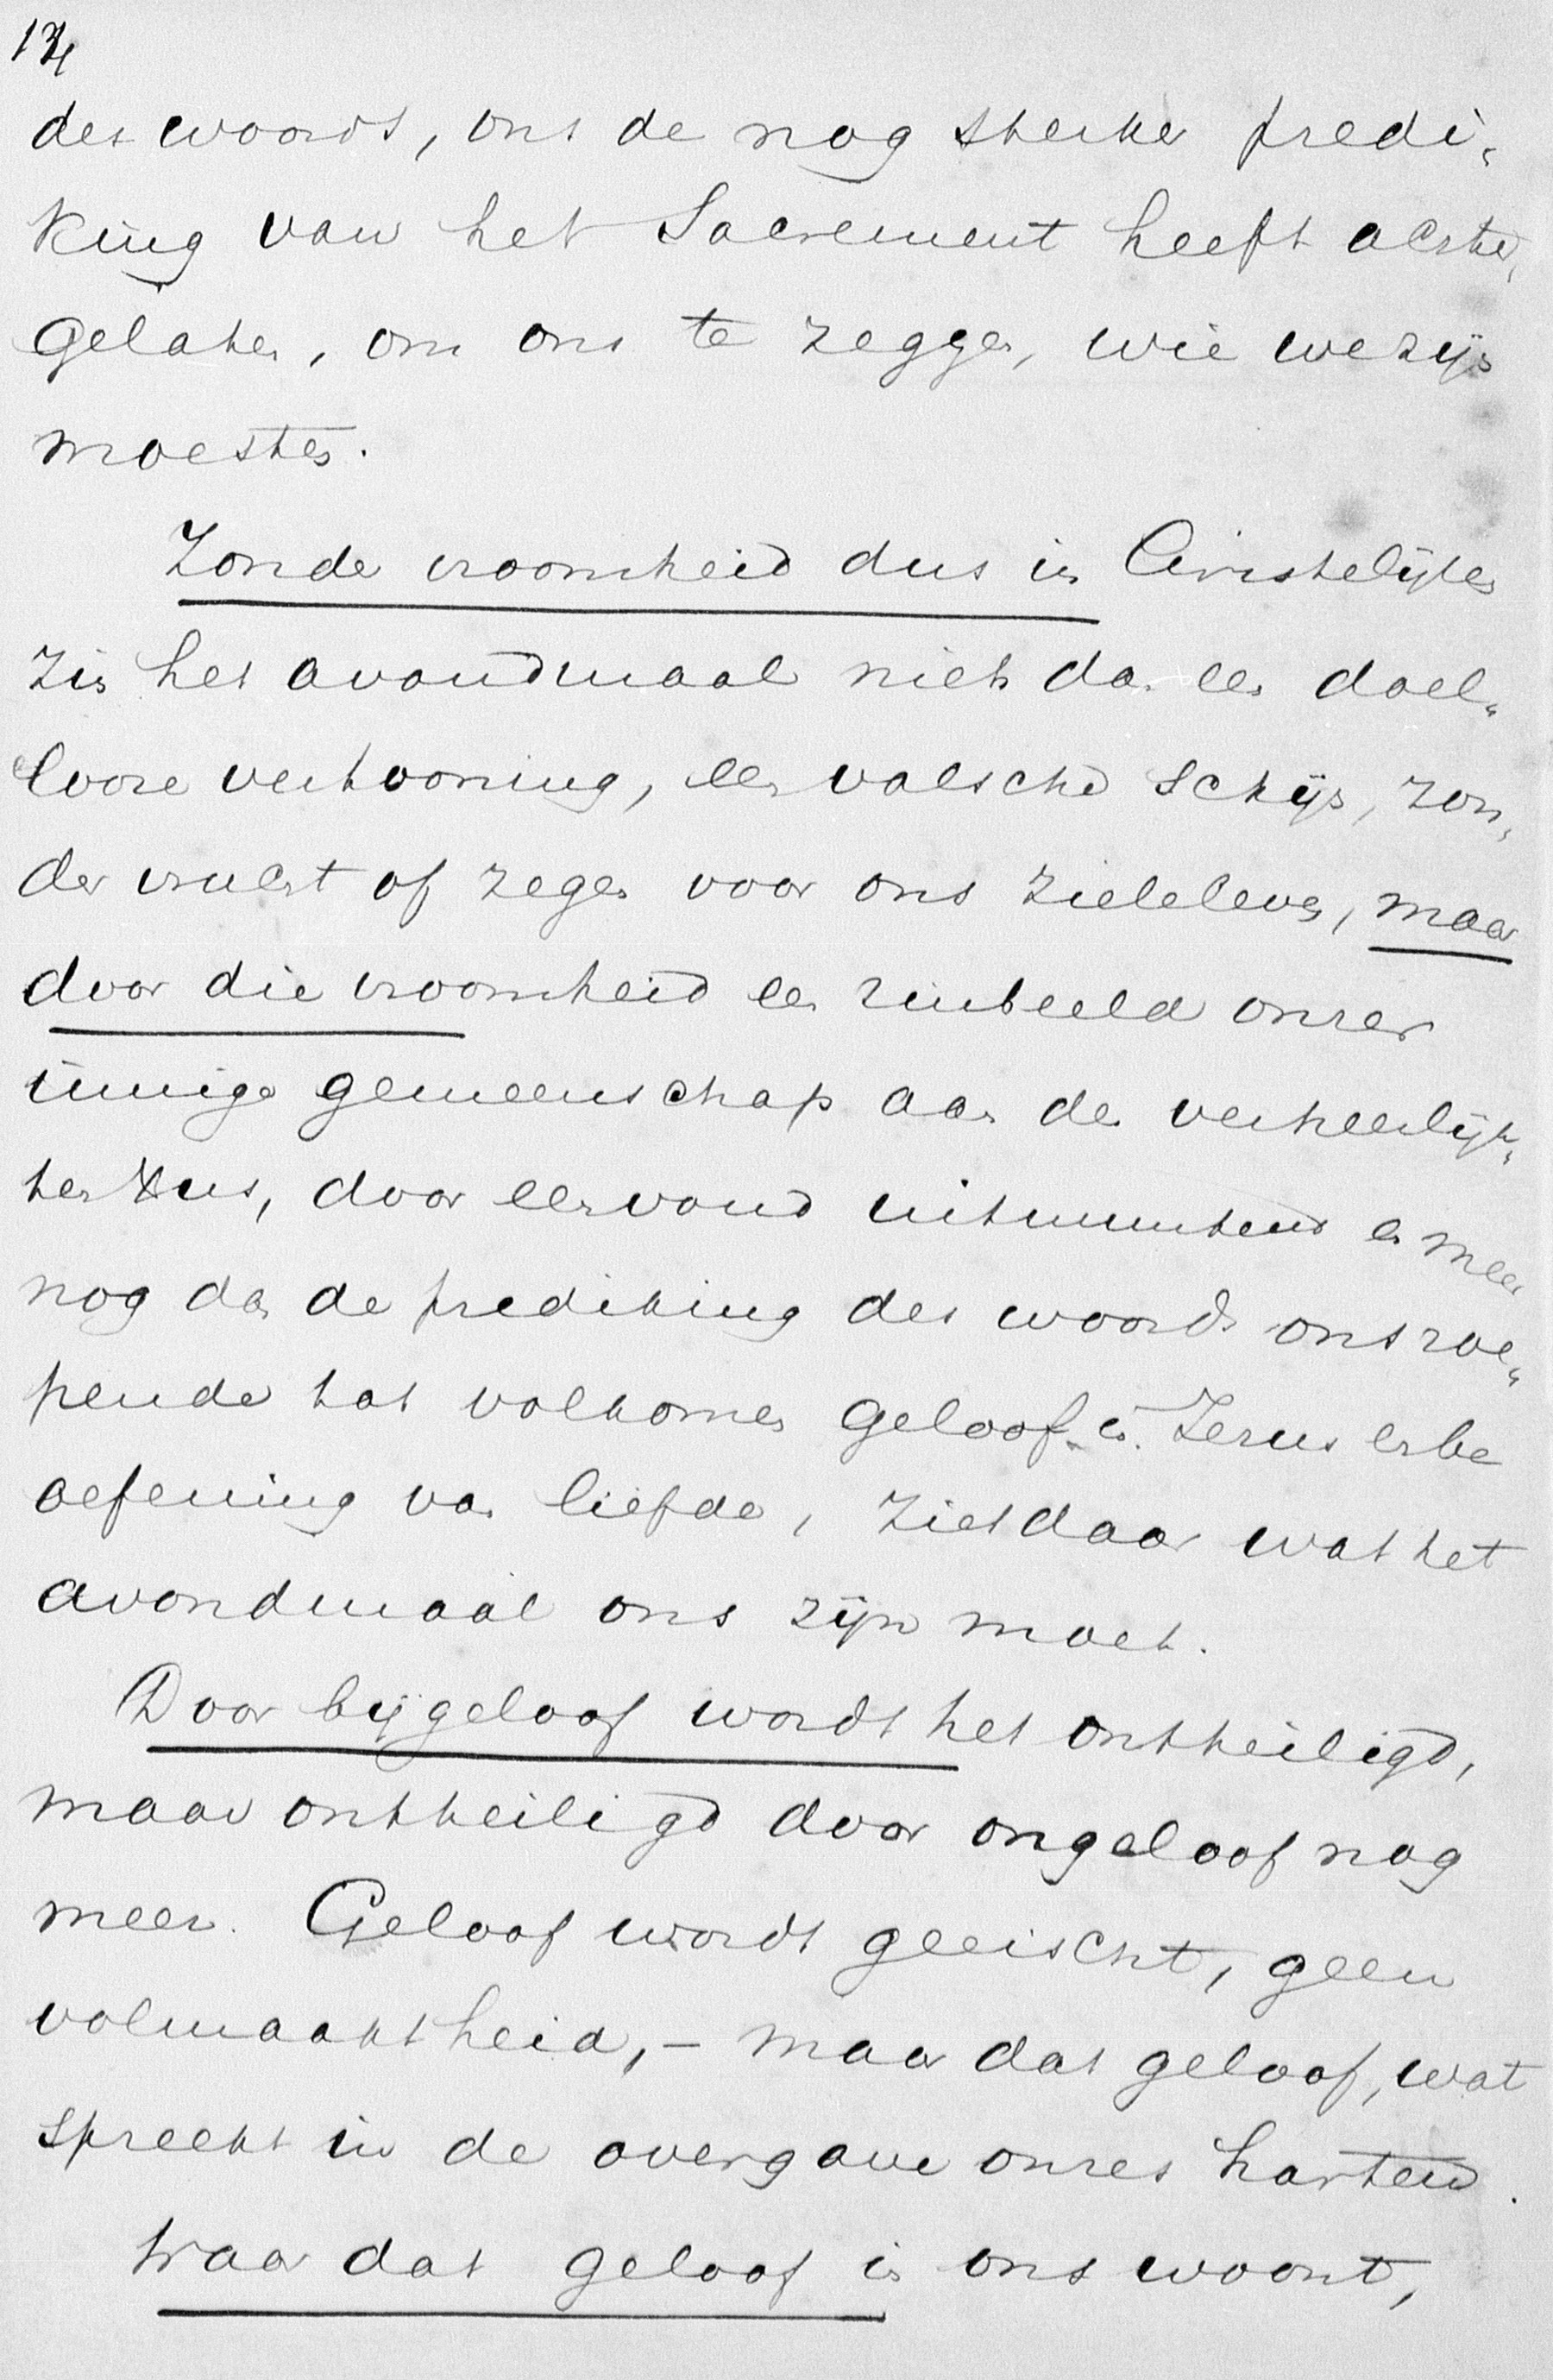 14
des woords, ons de nog sterker predi„
king van het Sacrement heeft achter„
gelaten, om ons te zeggen, wie we zijn
moesten.
Zonder vroomheid dus in Christelijken
zin het avondmaal niets dan een doel„
looze vertooning, een valsche schijn, zon„
der vrucht of zegen voor ons zieleleven, maar
door die vroomheid een zinbeeld onzer
innige gemeenschap aan den verheerlijk„
ten Xus, door eenvoud uitmuntend en meer
nog dan de prediking des woords ons roe„
pende tot volkomen geloof in Jezus en be
oefening van liefde, ziet daar wat het
avondmaal ons zijn moet.
Door bijgeloof wordt het ontheiligd,
maar ontheiligd door ongeloof nog
meer. Geloof wordt geeischt, geen
volmaaktheid, – maar dat geloof, wat
spreekt in de overgave onzes harten.
Waar dat geloof in ons woont,